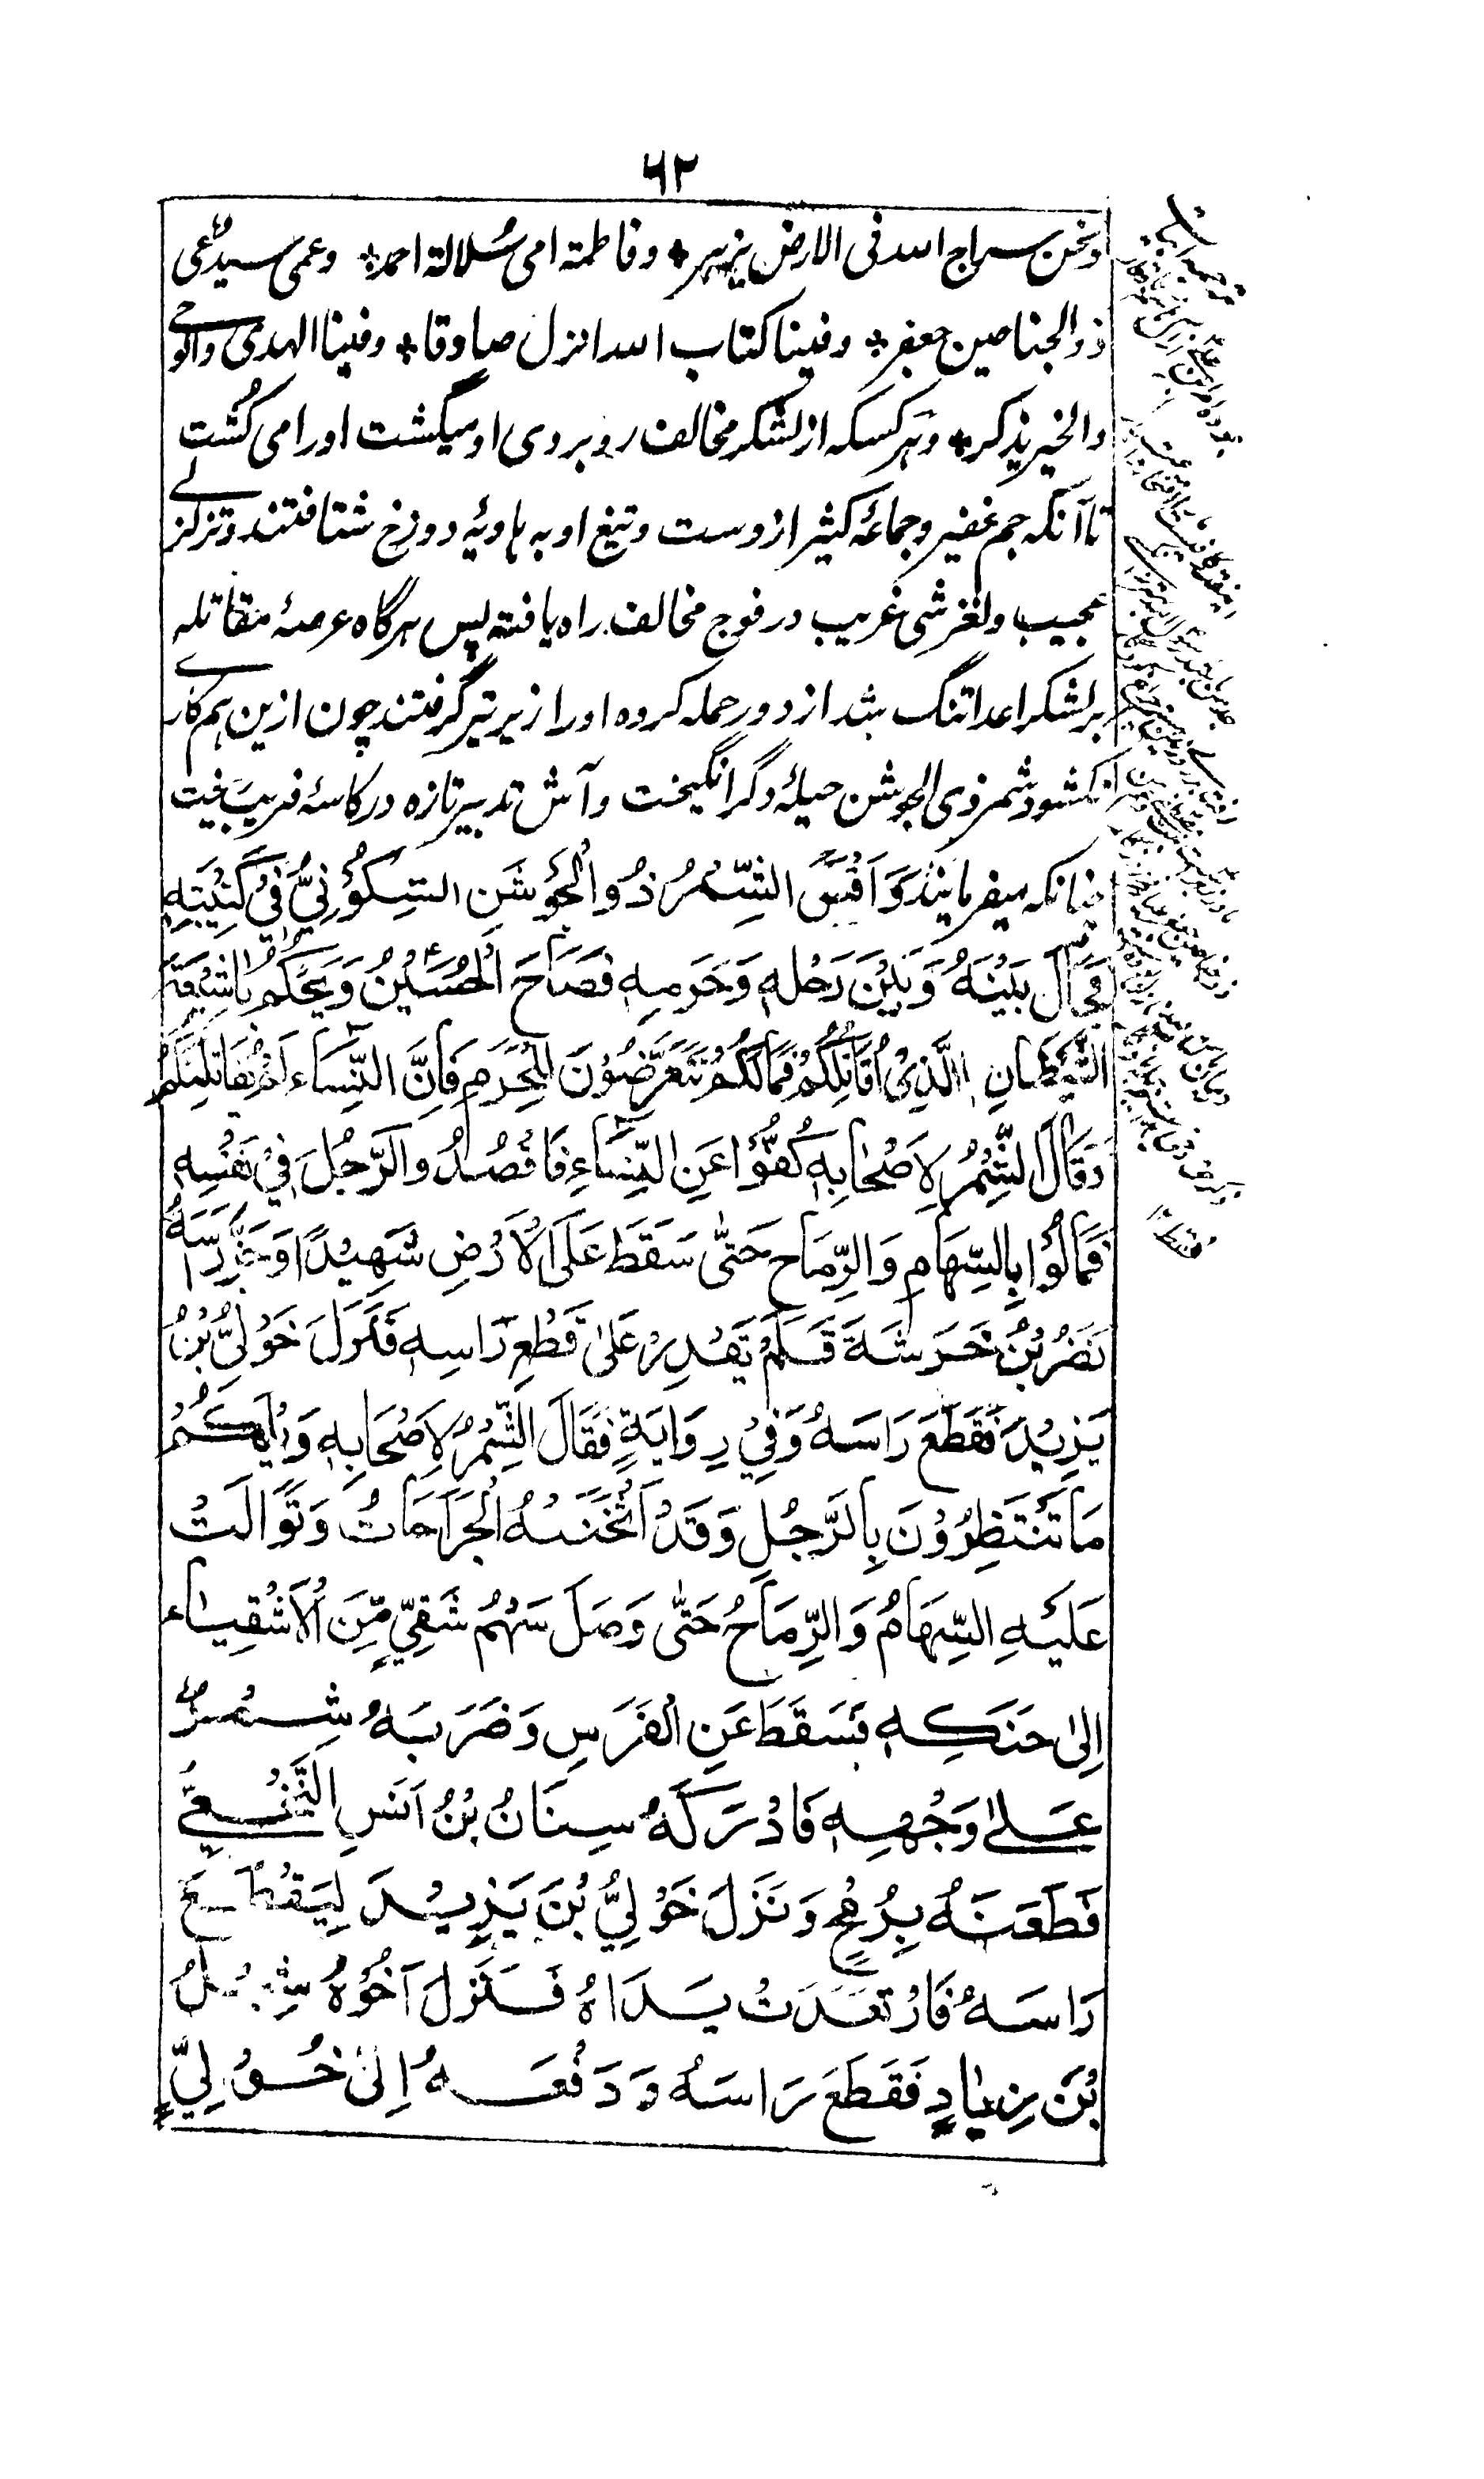 ٦٢
ونحن سراج اللہ فی الارض یزہر * وفاطمۃ امی سلالۃ احمد * وعمی سیدعی
ذوالجناحین جعفر * وفینا کتاب اللہ انزل صادقا * وفینا الہدی والوحے
والخیر یذکر * وہرکسکہ از لشکر مخالف روبروی او میگشت اورا می کُشت
تاآنکہ جم غفیر وجماعۂ کثیر از دست وتیغ او بہ ہاویۂ دوزخ شتافتند وتزلزلے
عجیب ولغزشی غریب در فوج مخالف راہ یافتہ پس ہرگاہ عرصۂ مقاتلہ
برلشکر اعدا تنگ شد از دور حملہ کردہ اورا زیر تیر گرفتند چون ازین ہم کارے
نکشود شمر ذی الجوشن حیلۂ دگر انگیخت وآش تدبیر تازہ در کاسۂ فریب ریخت
چنانکہ میفرمایند وَاَقْبَلَ الشِّمْرُ ذُوالْجَوْشَنِ السَّكُوْنِيُّ فِيْ كَتِيْبَتِهٖ
فَحَالَ بَيْنَهٗ وَبَيْنَ رَحْلِهٖ وَحَرَمِهٖ فَصَاحَ الْحُسَيْنُ وَيْحَكُمْ يَاشِيْعَةَ
الشَّيْطَانِ اَالَّذِيْ اُقَاتِلُكُمْ فَمَالَكُمْ تَتَعَرَّضُوْنَ لِلْحَرَمِ فَاِنَّ النِّسَاءَ لَمْ يُقَاتِلْنَكُمْ
وَقَالَ الشِّمْرُ لِاَصْحَابِهٖ كُفُّوْا عَنِ النِّسَاءِ فَاقْصُدُوا الرَّجُلَ فِيْ نَفْسِهٖ
فَمَالُوْا بِالسِّهَامِ وَالرِّمَاحِ حَتّٰى سَقَطَ عَلَى الْاَرْضِ شَهِيْدًا وَحَزَّ رَاسَهٗ
نَضْرُ بْنُ خَرَشَةَ فَلَمْ يَقْدِرْ عَلٰى قَطْعِ رَاسِهٖ فَنَزَلَ خَوْلِيُّ بْنُ
يَزِيْدَ فَقَطَعَ رَاسَهٗ وَفِيْ رِوَايَةٍ فَقَالَ الشِّمْرُ لِاَصْحَابِهٖ وَيْلَكُمْ
مَا تَنْتَظِرُوْنَ بِالرَّجُلِ وَقَدْ اَثْخَنَتْهُ الْجَرَاحَاتُ وَتَوَالَتْ
عَلَيْهِ السِّهَامُ وَالرِّمَاحُ حَتّٰى وَصَلَ سَهْمُ شَقِيٍّ مِّنَ الْاَشْقِيَاءِ
اِلٰى حَنَكِهٖ فَسَقَطَ عَنِ الْفَرَسِ وَضَرَبَهٗ شِمْرٌ
عَلٰى وَجْهِهٖ فَادْرَكَهٗ سِنَانُ بْنُ اَنَسِ النَّخَعِيُّ
فَطَعَنَهٗ بِرُمْحٍ وَنَزَلَ خَوْلِيُّ بْنُ يَزِيْدَ لِيَقْطَعَ
رَاسَهٗ فَارْتَعَدَتْ يَدَاهُ فَنَزَلَ اَخُوْهُ شِبْلُ
بْنُ يَزِيْدَ فَقَطَعَ رَاسَهٗ وَدَفَعَهٗ اِلٰى خَوْلِيٍّ